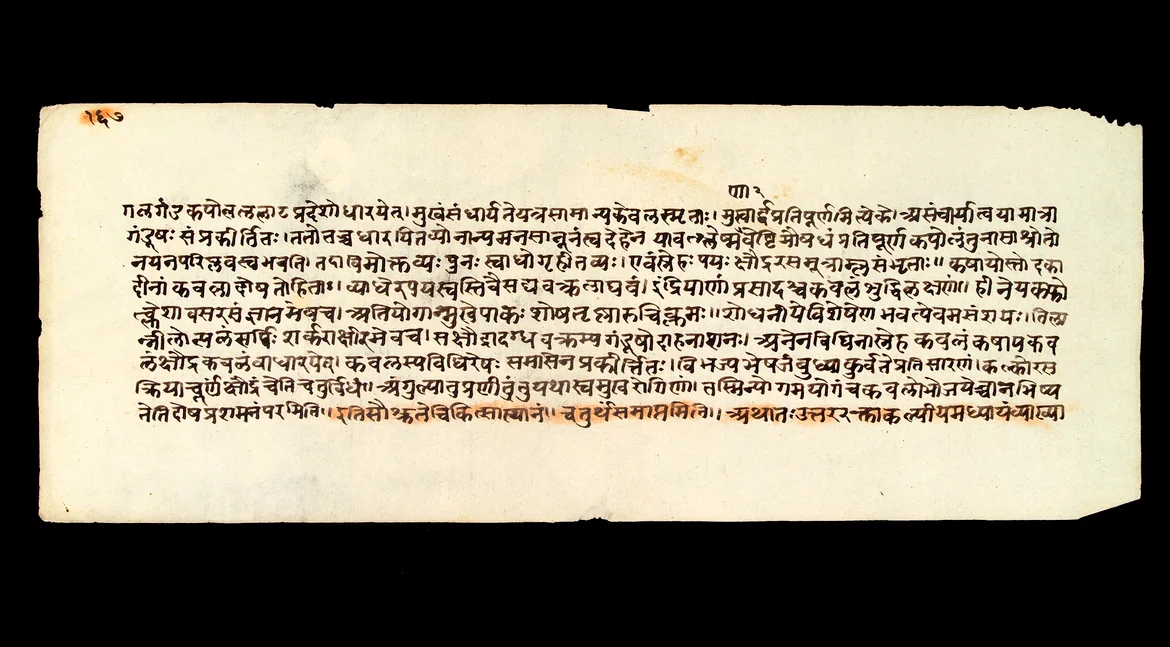 १६७
णा २
गलगंड कपोलललाट प्रदेशो धारयेत्। मुखं संधार्यतेयत्रसामान्यकेवलस्मृताः। मुखार्द्धप्रतिपूर्णमित्येके। असंचार्यात्वयामात्रा
गंडूषः संप्रकीर्तितः। ततोवच्च धारयितव्योनान्यमनसानूनंत्वदेहेन यावत्श्लेष्म औषधं प्रतिपूर्ण कपोलंतुनासाश्रोतो
नयनपरिप्लवस्वभवति। तदाविमोक्तव्यः पुनः स्वाधोगृहीतव्यः। एवंस्नेहः पयः क्षौद्ररसमूत्राम्लसंभृताः॥ कषायोस्तोदका
दीनां कवलादोषतोहिताः। व्याधेरपचयस्वस्तिवैसद्यवक्त्रलाघवं। इंद्रियाणां प्रसादश्चकवलं शुद्धिलक्षणं॥ हीनेयकफो
त्क्लेशावसरसंज्ञानमेवच। अतियोगान्मुखेपाकः शोषतृष्णारुचिक्लमः॥ शोधनीयेविशेषेण भवत्येवमसंशयः। तिला
न्नीलोत्पलंसर्पिः शर्कराक्षीरमेवच। सक्षौद्रादग्ध वक्त्रस्य गंडूषोदाहनाशनः। अनेनविधिनास्नेह कवलं कषायकव
लंक्षौद्रकवलंवाधारयेत्। कवलस्यविधिरेषः समासेन प्रकीर्त्तितः। विभज्य भेषजंबुध्या कुर्वतेप्रतिसारणं। कल्कोरस
क्रियाचूर्णक्षौद्रं चेतिचतुर्विधं॥ अंगुल्यातुप्रणीतुंतुयथास्वमुखरोगिणां। तस्मिन्योगमयोगंचकवलोभोजयेच्चानभिष्य
नेतिदोषप्रशमनंपरमिति॥ इतिसौश्रुतेचिकित्सास्थानं॥ चतुर्थंसमाप्तमिति॥ अथातःउत्तररक्ताकल्पीयमध्यायंव्याख्या